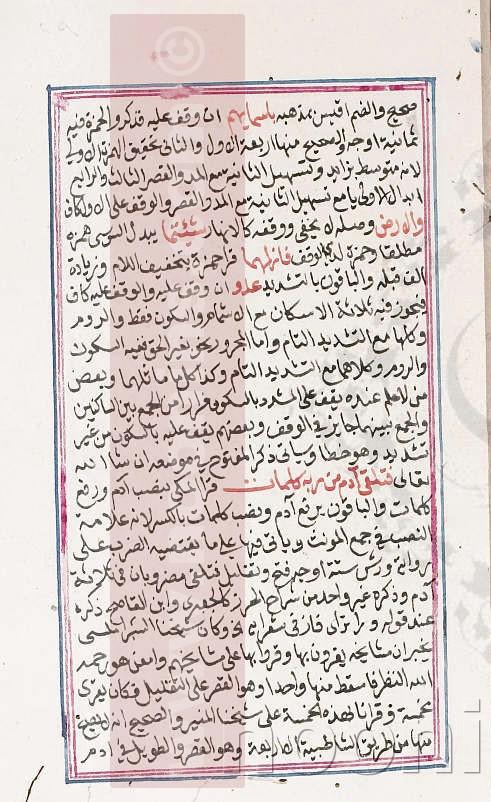 صحيح والضم اقيس بمذهبه باسمايهم ان وقف عليه فذكروا لحمزة فيه
ثمانية اوجه والصحيح منها اربعة الاول والثانى تحقيق الهمزة الاولى
لانه متوسط بزايد وتسهيل الثانية مع المد والقصر الثالث والرابع
ابدال الاولى يا مع تسهيل الثانية مع المد والقصر والوقف على الاول كاف
والارض وصله لا يخفى ووقفه كالانهار شيتما يبدل السوسى همزه
مطلقا وحمزة لدى الوقف فازلهما قرا حمزة بتخفيف اللام وزيادة
الف قبله والباقون بالتشديد عدو ان وقف عليه والوقف عليه كاف
فيجوز فيه ثلاثة الاسكان مع الاشمام والسكون فقط والروم
وكلها مع التشديد التام واما المجرور نحو بغير الحق ففيه السكون
والروم وكلاهما مع التشديد التام وكذا كل ما ماثلهما وبعض
من لا علم عنده يقف على المشدد بالسكون فرارا من الجمع بين الساكنين
والجمع بينهما جايز فى الوقف وبعضهم يقف عليه بالسكون من غير
تشديد وهو خطا وياتى ذكر المفتوح فى موضعه ان شا الله
تعالى فتلقى آدم من ربه كلمات قرا المكى بنصب آدم ورفع
كلمات والباقون برفع آدم ونصب كلمات بالكسر لانه علامة
النصب فى جمع المونث وياتى فيها على ما يقتضيه الضرب على
رواية ورش ستة اوجه فتح وتقليل فتلقى مضروبان فى ثلاثة
آدم وذكره غير واحد من شراح الحرز كالجعبرى وابن القاصح ذكره
عند قوله ورا تراى فاز فى شعرايه وكان شيخنا
يخبر ان مشايخه يقرون بها وقرا بها على مشايخهم وامعن هو رحمه
الله النظر فاسقط منها واحدا وهو القصر على التقليل فكان يقرى
بخمسة وقرانا بهذه الخمسة على شيخنا والصحيح انه لا يصح
منها من طريق الشاطبية الا اربعة وهو القصر والطويل فى آدم